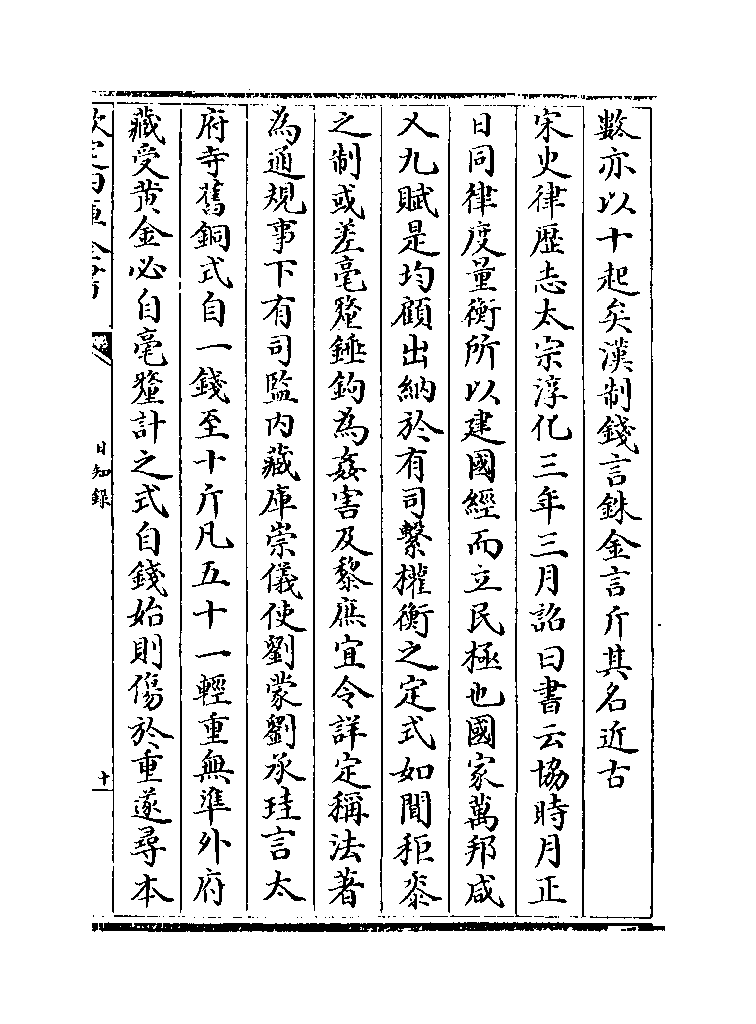 數亦以十起矣漢制錢言銖金言斤其名近古
宋史律歷志太宗淳化三年三月詔曰書云協時月正
日同律度量衡所以建國經而立民極也國家萬邦咸
乂九賦是均顧出納於有司繫權衡之定式如聞秬黍
之制或差毫釐錘鉤為姦害及黎庶宜令詳定稱法著
為通規事下有司監內藏庫崇儀使劉蒙劉承珪言太
府寺舊銅式自一錢至十斤凡五十一輕重無準外府
藏受黄金必自毫釐計之式自錢始則傷於重遂尋本
日知錄
十